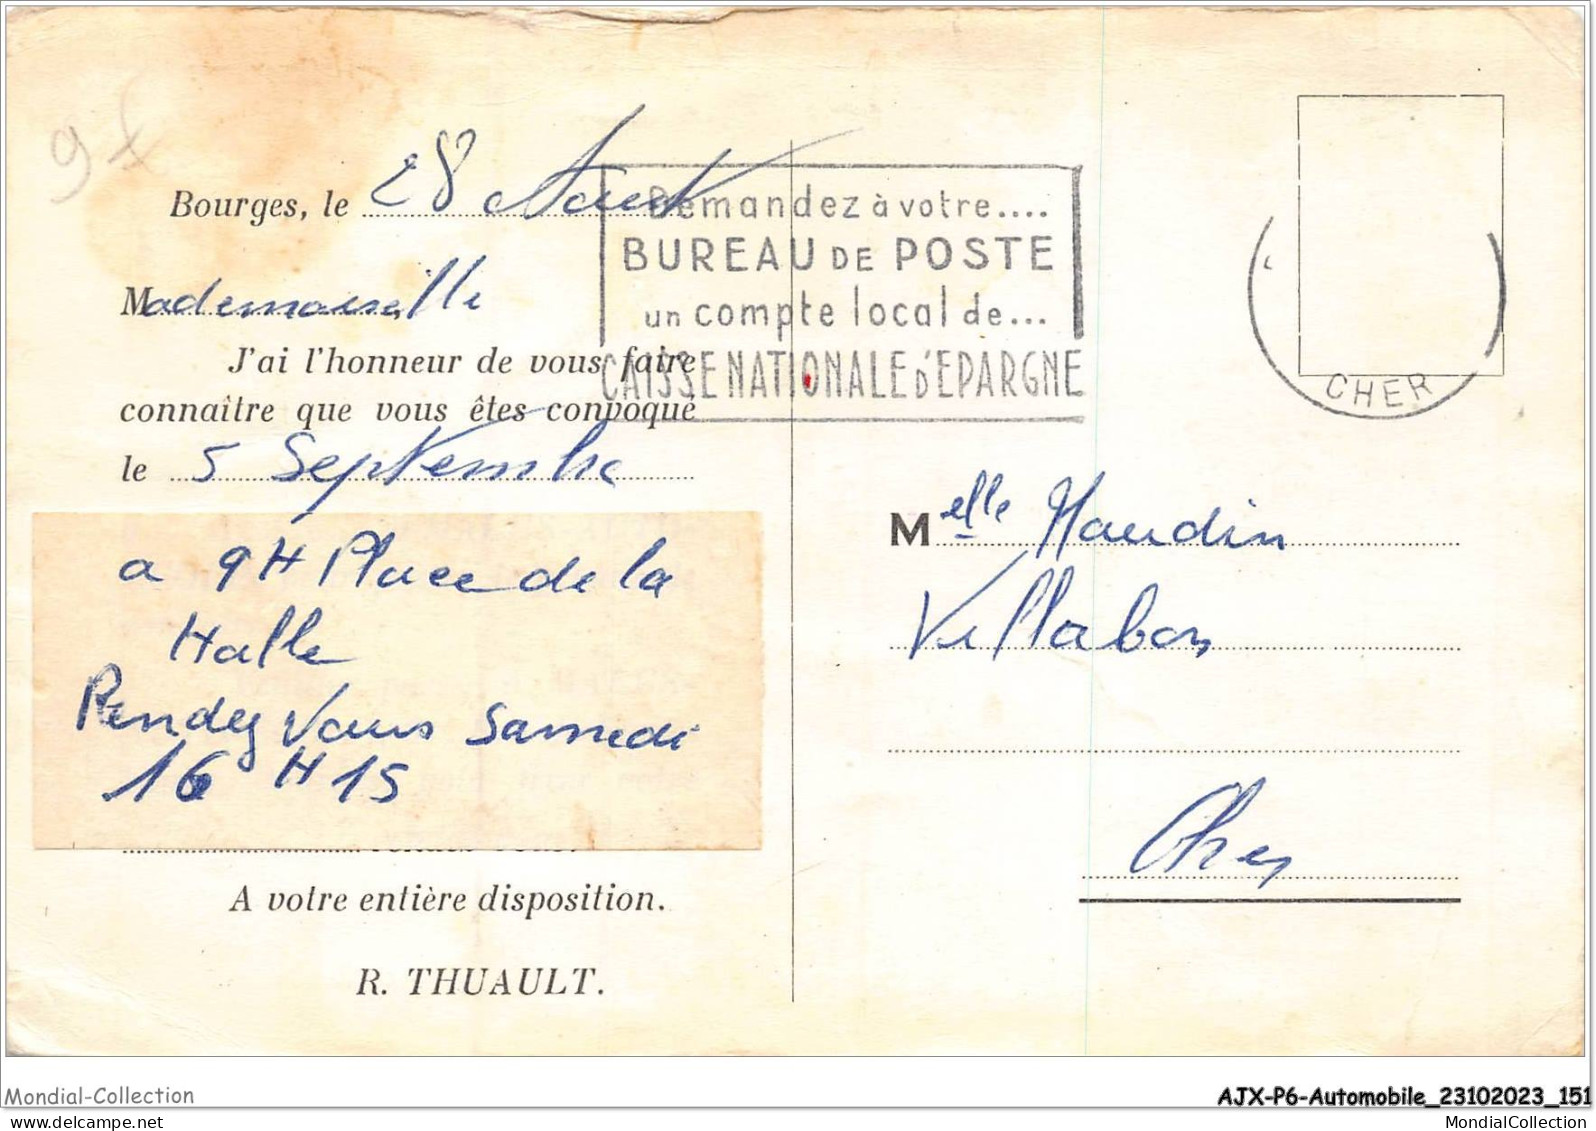 9f
Bourges, le 28 Aout
Mademoiselle
J'ai l'honneur de vous faire
connaître que vous êtes convoqué
le 5 Septembre
a 9H Place de la
Halle
Rendez Vous Samedi
16 H 15
A votre entière disposition.
R. THUAULT.
Demandez à votre....
BUREAU DE POSTE
un compte local de...
CAISSE NATIONALE D'EPARGNE
CHER
Melle Haudin
Villabon
Cher
Mondial-Collection
AJX-P6-Automobile_23102023_151
MondialCollection